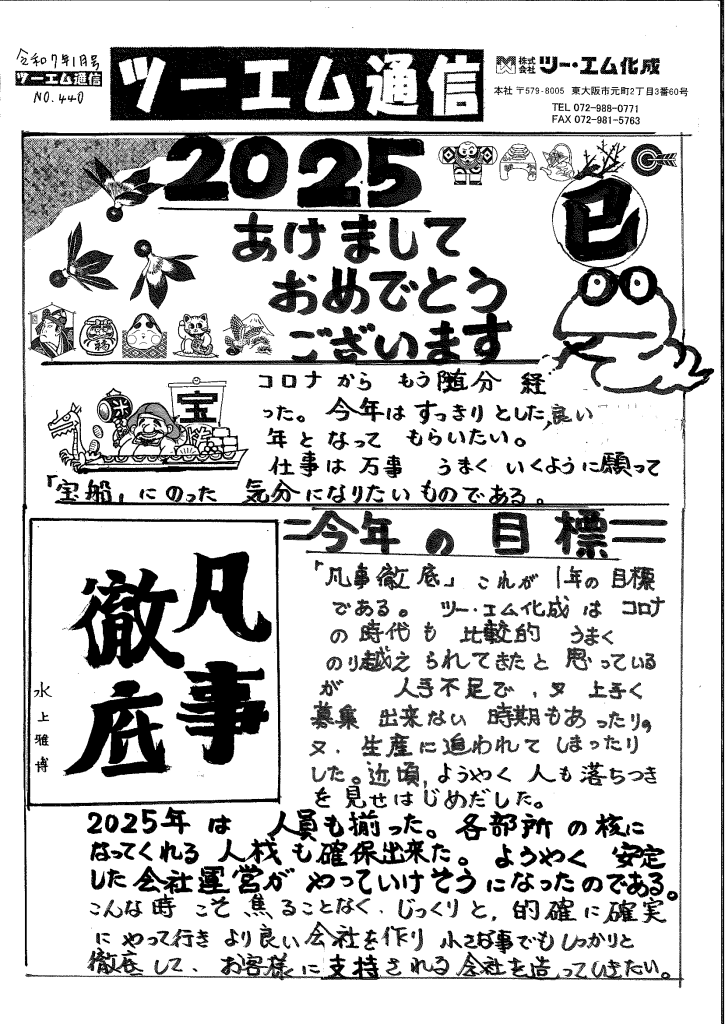 令和7年1月号
ツーエム通信
NO.440
ツーエム通信
株式会社 ツー・エム化成
本社 〒579-8005 東大阪市元町2丁目3番60号
TEL 072-988-0771
FAX 072-981-5763
2025
あけまして
おめでとう
ございます
巳
福
宝
コロナから もう随分 経
った。今年は すっきりとした、良い
年となって もらいたい。
仕事は 万事 うまく いくように願って
「宝船」にのった 気分になりたいものである。
=今年の目標=
凡事
徹底
水上雅博
「凡事徹底」これが 1年の目標
である。ツー・エム化成 は コロナ
の時代も 比較的 うまく
のり越え られてきたと 思っている
が 人手不足で、又 上手く
募集 出来ない 時期もあったり。
又、生産に追われて しまったり
した。近頃、ようやく 人も落ちつき
を見せはじめだした。
2025年 は 人員も揃った。各部所 の核に
なってくれる 人材も確保出来た。ようやく 安定
した会社運営が やっていけそうになったのである。
こんな時 こそ 焦ることなく、じっくりと、的確に確実
に やって行き より良い会社を作り 小さな事でもしっかりと
徹底して、お客様に支持される会社を造っていきたい。